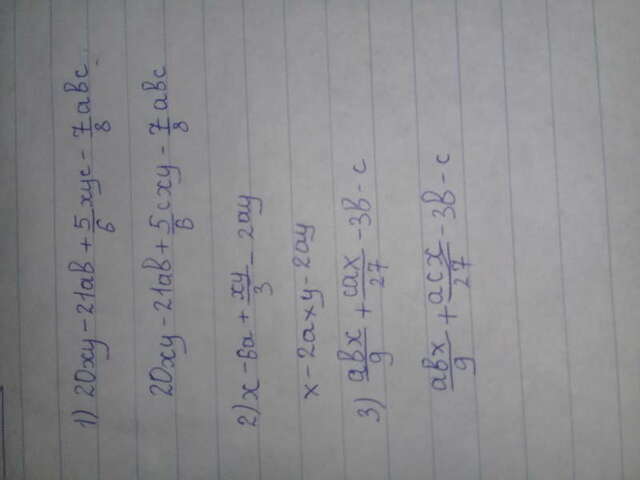 1) 20xy - 21ab + 5/6 xyc - 7/8 abc
20xy - 21ab + 5/6 cxy - 7/8 abc
2) x - 6a + xy/3 - 2ay
x - 2axy - 2ay
3) abx/9 + cax/27 - 3b - c
abx/9 + acx/27 - 3b - c